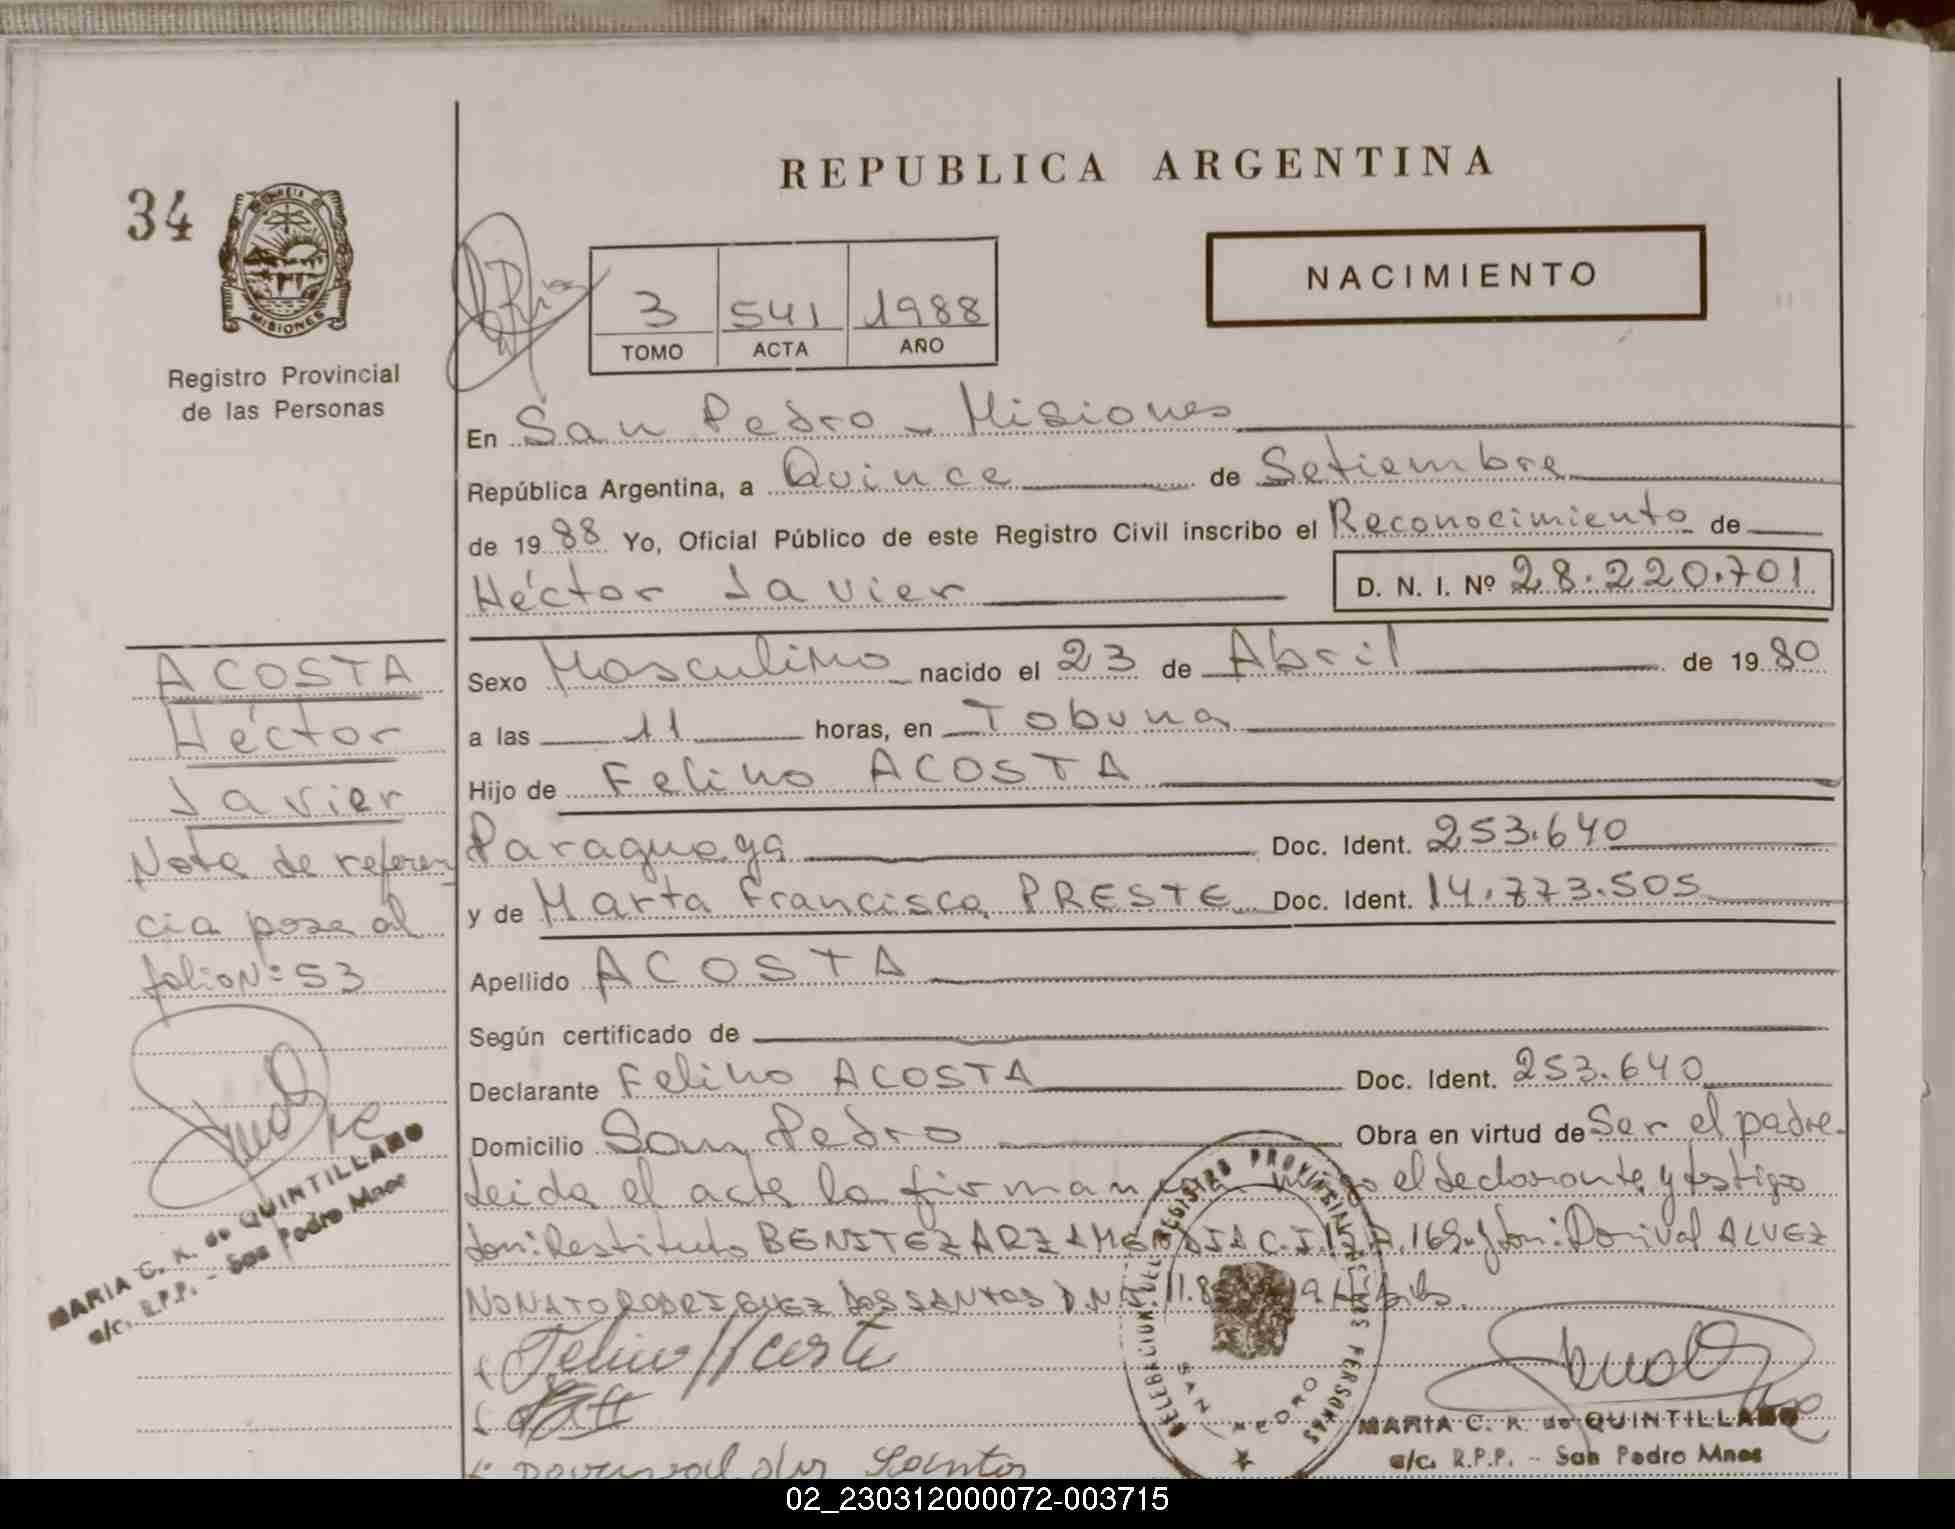 REPUBLICA ARGENTINA
34
MISIONES
Registro Provincial
de las Personas
NACIMIENTO
3 541 1988
TOMO ACTA AÑO
En San Pedro - Misiones
República Argentina, a Quince de Setiembre
de 1988 Yo, Oficial Público de este Registro Civil inscribo el Reconocimiento de
Héctor Javier D. N. I. Nº 28.220.701
ACOSTA
Héctor
Javier
Nota de referen
cia pasa al
folio Nº 53
MARIA C. K. de QUINTILLANO
a/c. R.P.P. - San Pedro Mnes
Sexo Masculino nacido el 23 de Abril de 1980
a las 11 horas, en Tobuna
Hijo de Felino ACOSTA
Paraguaya Doc. Ident. 253.640
y de Marta Francisca PRESTE Doc. Ident. 14.773.505
Apellido ACOSTA
Según certificado de
Declarante Felino ACOSTA Doc. Ident. 253.640
Domicilio San Pedro Obra en virtud de Ser el padre.
Leida el acta la firman el declarante y testigo
don: Restituto BENITEZ ARZAMENDIA C.I. 169. y don: Dorival ALVEZ
NONATO RODRIGUEZ DOS SANTOS D.N.I. 11.8
Felino Acosta
dos Santos
REGISTRO PROVINCIAL DE LAS PERSONAS
SAN PEDRO
MARIA C. K. de QUINTILLANO
a/c. R.P.P. - San Pedro Mnes
02_230312000072-003715